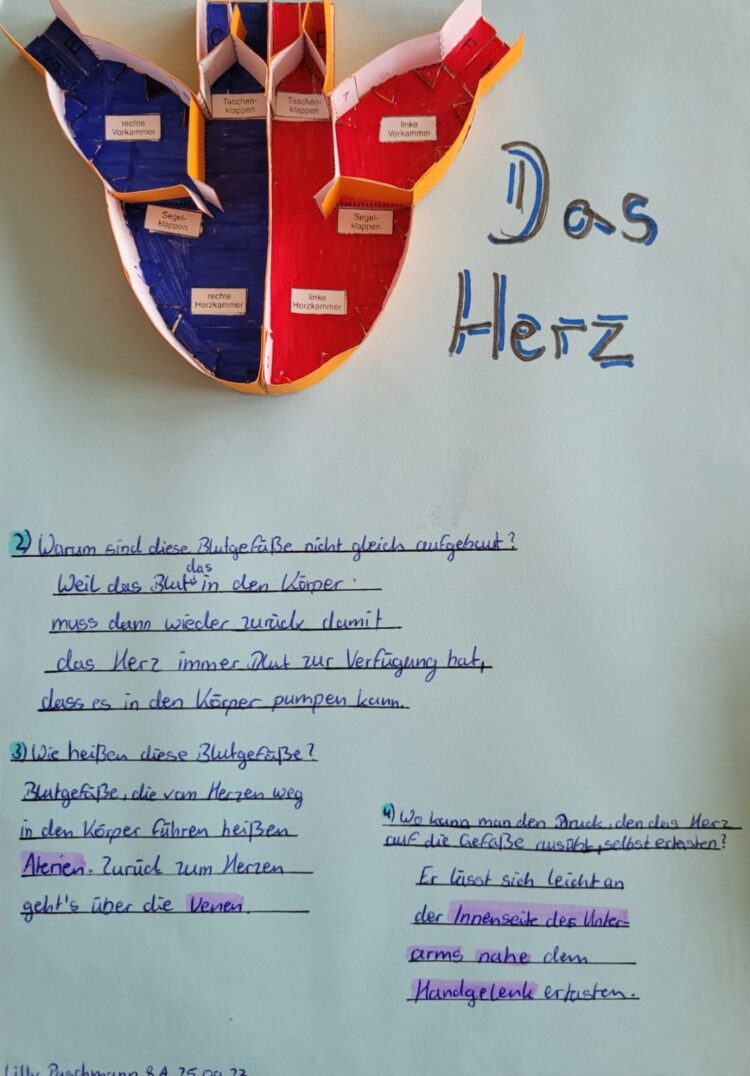 Taschen-
klappen
Taschen-
klappen
rechte
Vorkammer
linke
Vorkammer
Segel-
klappen
Segel-
klappen
rechte
Herzkammer
linke
Herzkammer
Das
Herz
2) Warum sind diese Blutgefäße nicht gleich aufgebaut?
das
Weil das Blut in den Körper.
muss dann wieder zurück damit
das Herz immer Blut zur Verfügung hat,
dass es in den Körper pumpen kann.
3) Wie heißen diese Blutgefäße?
Blutgefäße, die vom Herzen weg
in den Körper führen heißen
Aterien. Zurück zum Herzen
geht's über die Venen.
4) Wo kann man den Druck, den das Herz
auf die Gefäße ausübt, selbst ertasten?
Er lässt sich leicht an
der Innenseite des Unter=
arms nahe dem
Handgelenk ertasten.
Lilly 8A